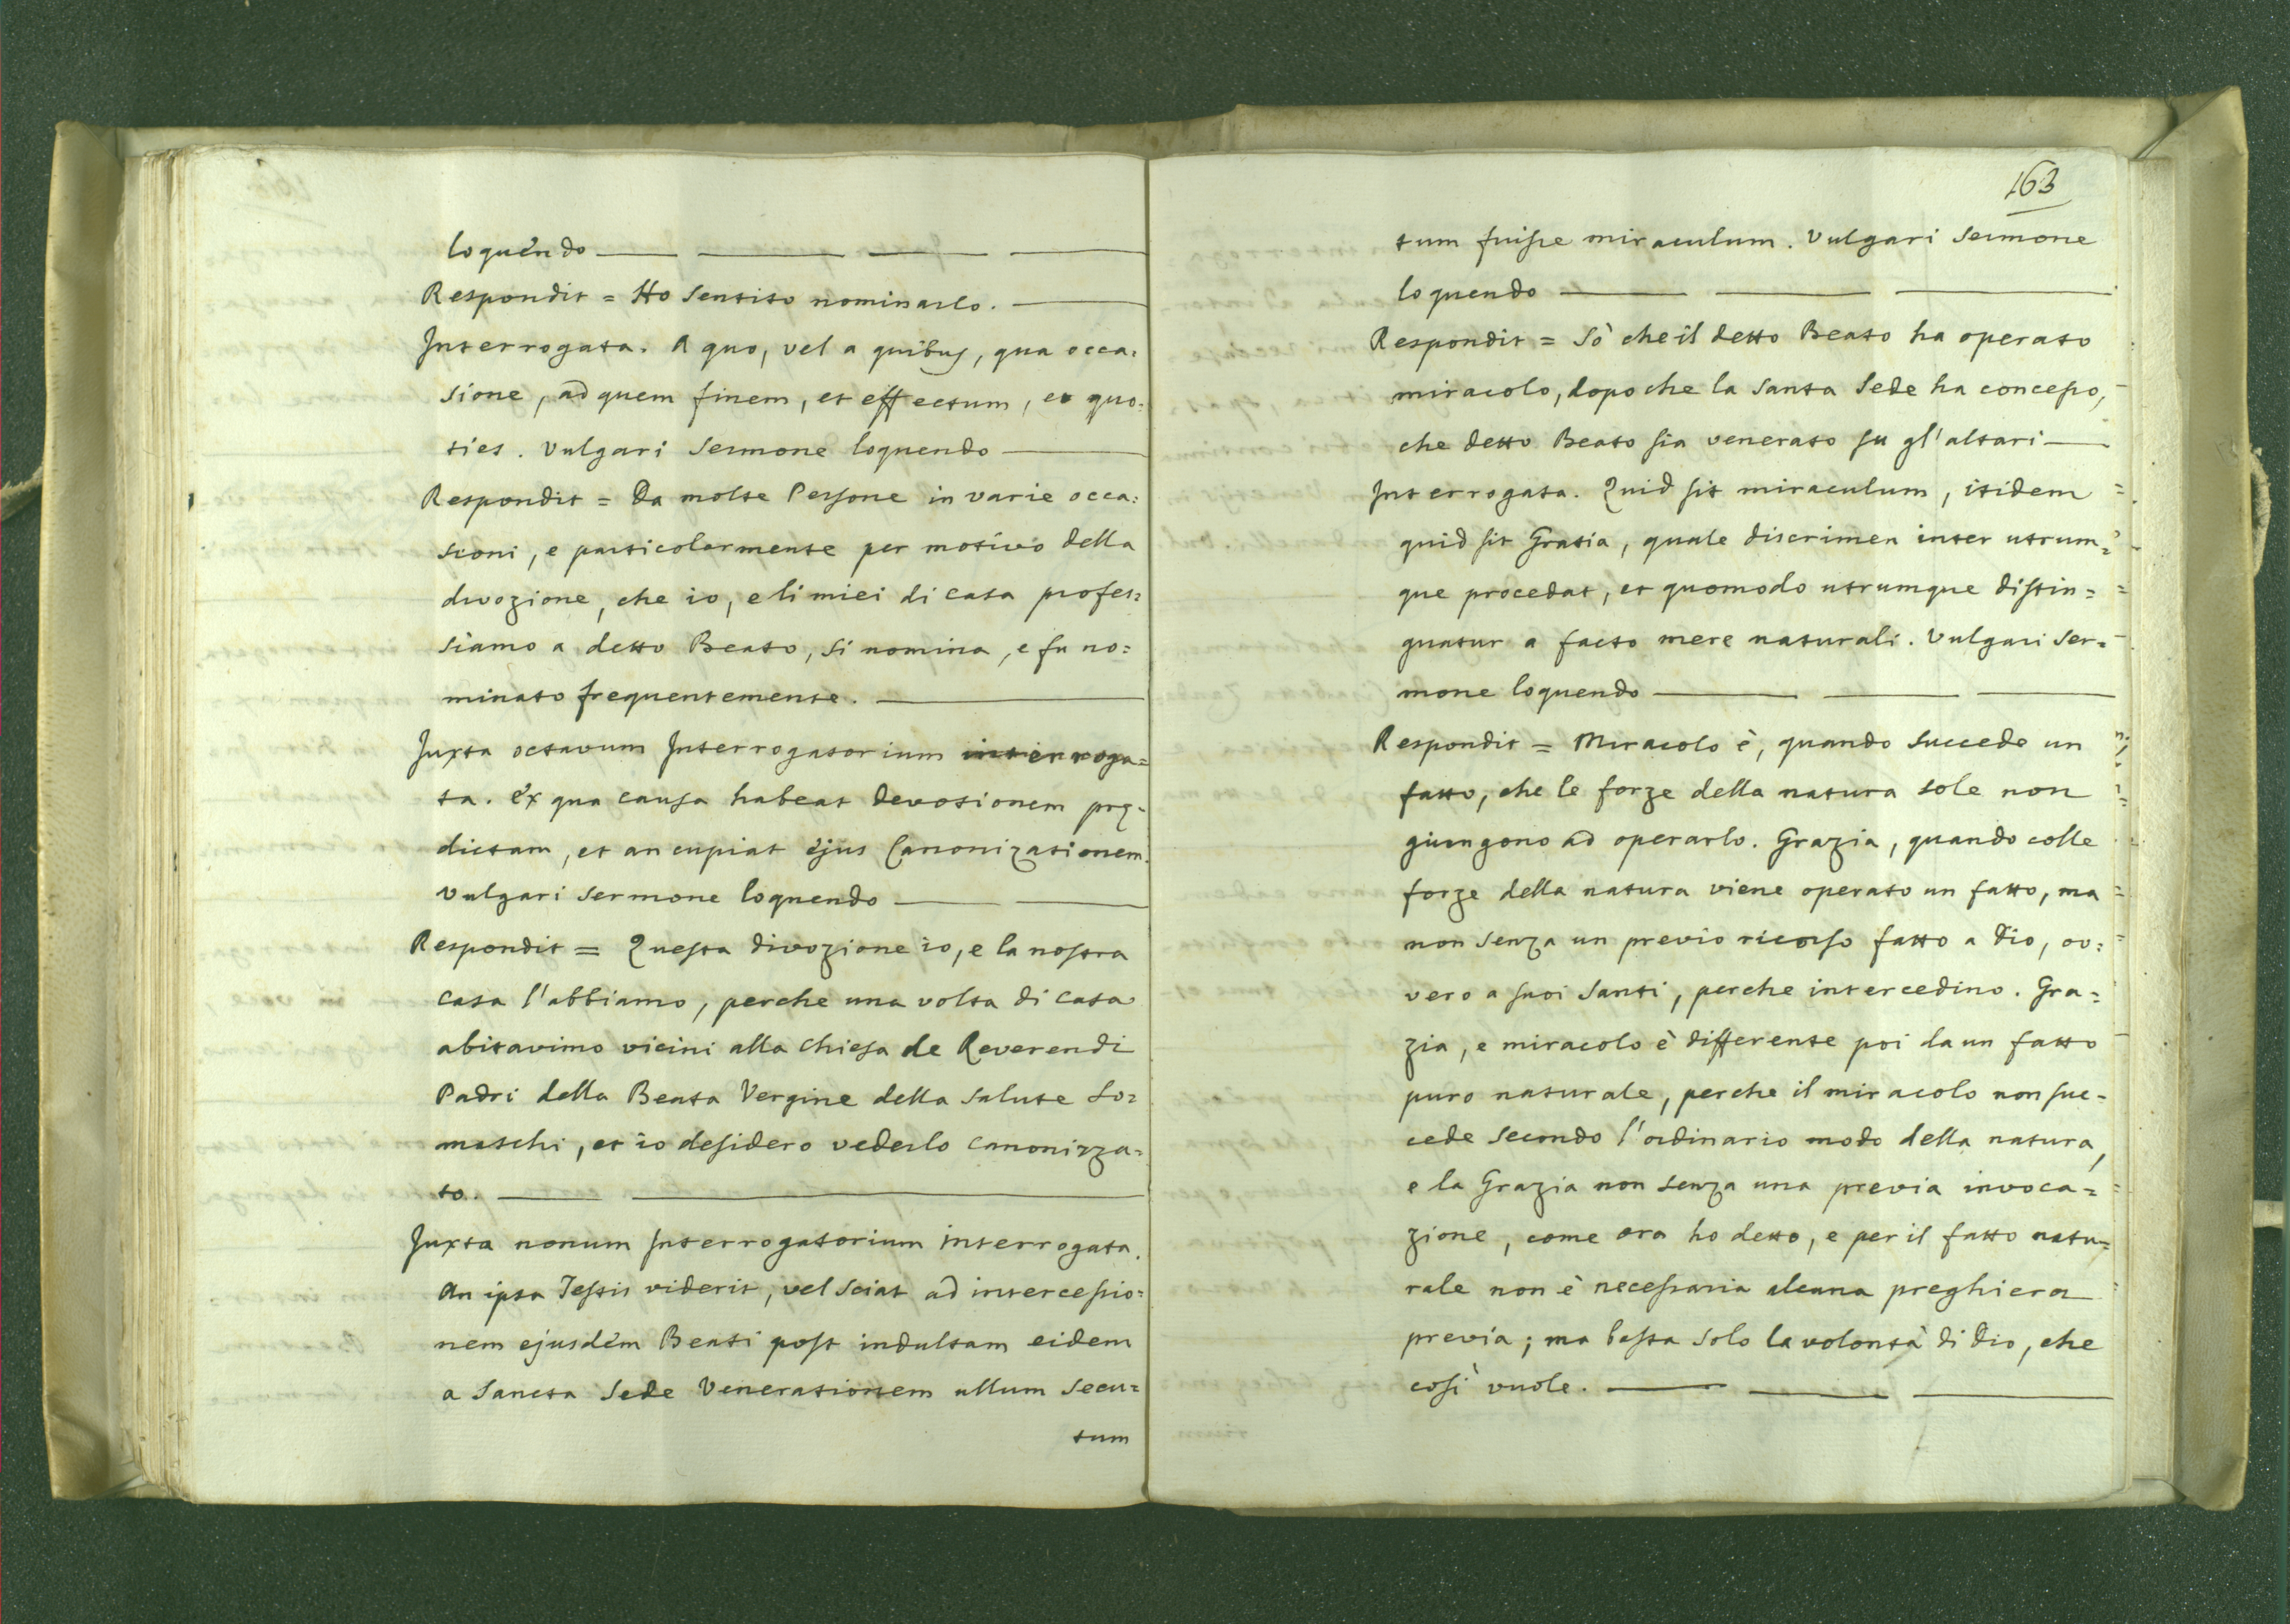 loquendo
Respondit = Ho sentito nominarlo.
Interrogata. A quo, vel a quibus, qua occa=
sione, ad quem finem, et effectum, et quo=
ties. Vulgari Sermone loquendo
Respondit = Da molte Persone in varie occa=
sioni, e particolarmente per motivo della
divozione, che io, e li miei di casa profes=
siamo a detto Beato, si nomina, e fu no=
minato frequentemente.
Juxta octavum Interrogatorium interroga=
ta. Ex qua causa habeat devotionem prę=
dictam, et an cupiat ejus Canonizationem.
Vulgari sermone loquendo
Respondit = Questa divozione io, e la nostra
casa l'abbiamo, perche una volta di casa
abitavimo vicini alla Chiesa de Reverendi
Padri della Beata Vergine della Salute So=
maschi, et io desidero vederlo canonizza=
to.
Juxta nonum Interrogatorium interrogata.
An ipsa Testis viderit, vel sciat ad intercessio=
nem ejusdem Beati post indultam eidem
a Sancta Sede Venerationem ullum secu=
tum
163
tum fuisse miraculum. Vulgari Sermone
loquendo
Respondit = Sò che il detto Beato ha operato
miracolo, dopo che la Santa Sede ha concesso,
che detto Beato sia venerato su gl'altari
Interrogata. Quid sit miraculum, itidem
quid sit Gratia, quale discrimen inter utrum=
que procedat, et quomodo utrumque distin=
guatur a facto mere naturali. Vulgari Ser=
mone loquendo
Respondit = Miracolo è, quando succede un
fatto, che le forze della natura sole non
giungono ad operarlo. Grazia, quando colle
forze della natura viene operato un fatto, ma
non senza un previo ricorso fatto a Dio, ov=
vero a suoi Santi, perche intercedino. Gra=
zia, e miracolo è differente poi da un fatto
puro naturale, perche il miracolo non suc=
cede secondo l'ordinario modo della natura,
e la Grazia non senza una previa invoca=
zione, come ora ho detto, e per il fatto natu=
rale non è necessaria alcuna preghiera
previa; ma basta solo la volontà di Dio, che
così vuole.